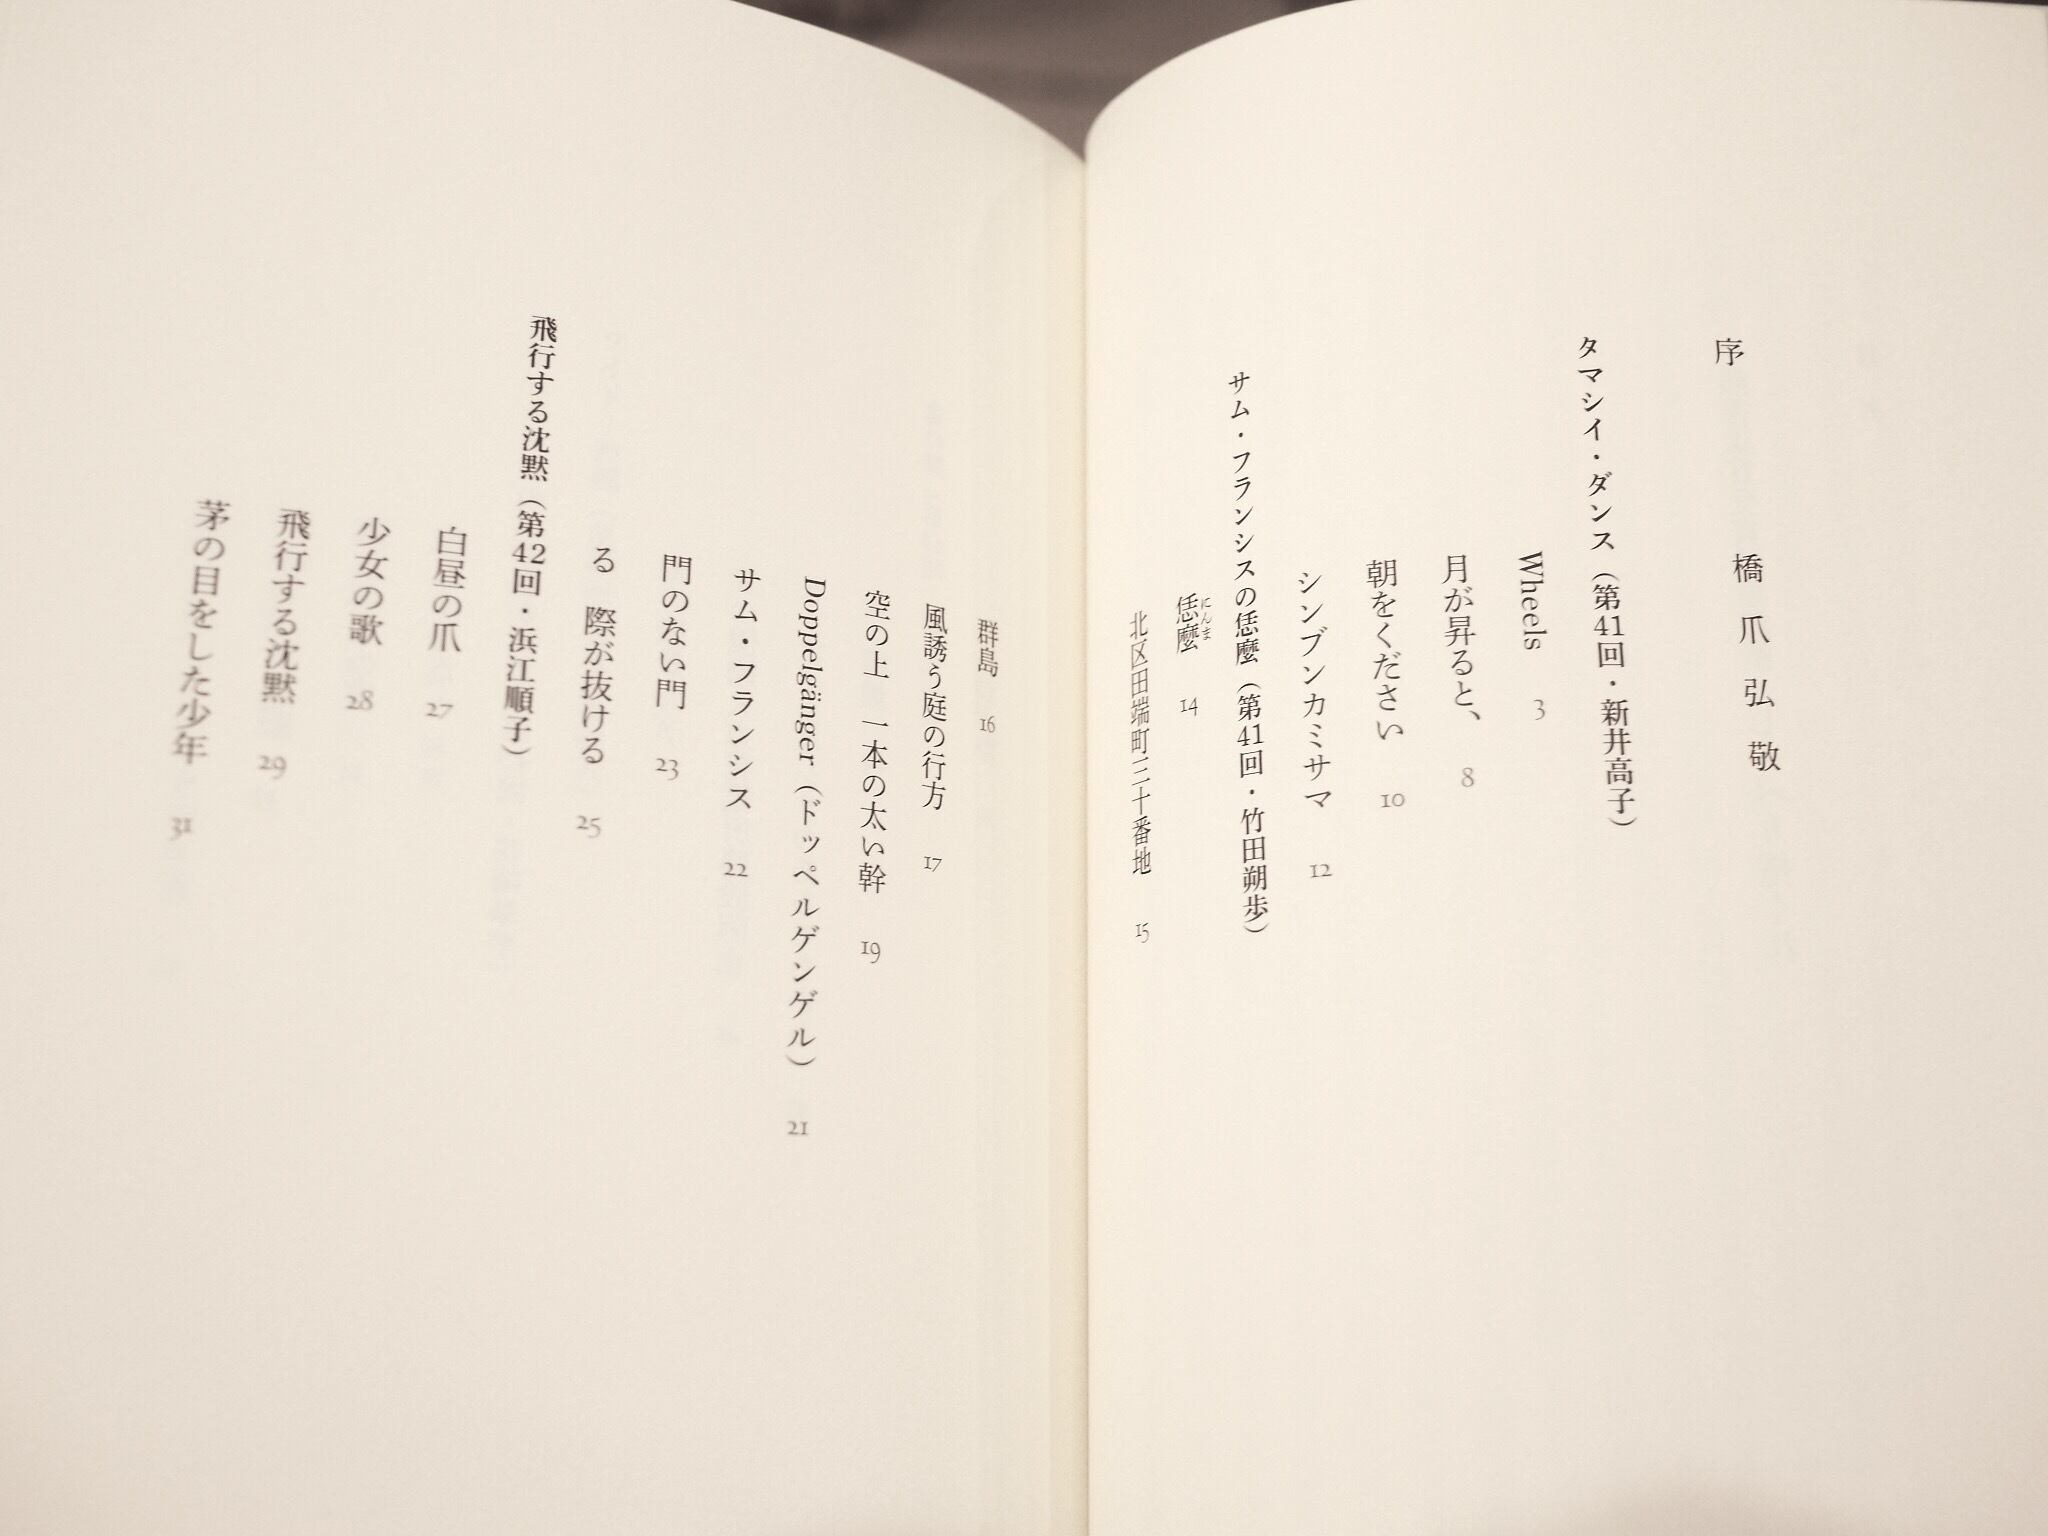 序 橋爪弘敬
タマシイ・ダンス（第41回・新井高子）
Wheels 3
月が昇ると、 8
朝をください 10
シンブンカミサマ 12
サム・フランシスの恁麼（第41回・竹田朔歩）
恁麼 にんま 14
北区田端町三十番地 15
群島 16
風誘う庭の行方 17
空の上 一本の太い幹 19
Doppelgänger（ドッペルゲンゲル） 21
サム・フランシス 22
門のない門 23
る 際が抜ける 25
飛行する沈黙（第42回・浜江順子）
白昼の爪 27
少女の歌 28
飛行する沈黙 29
茅の目をした少年 31